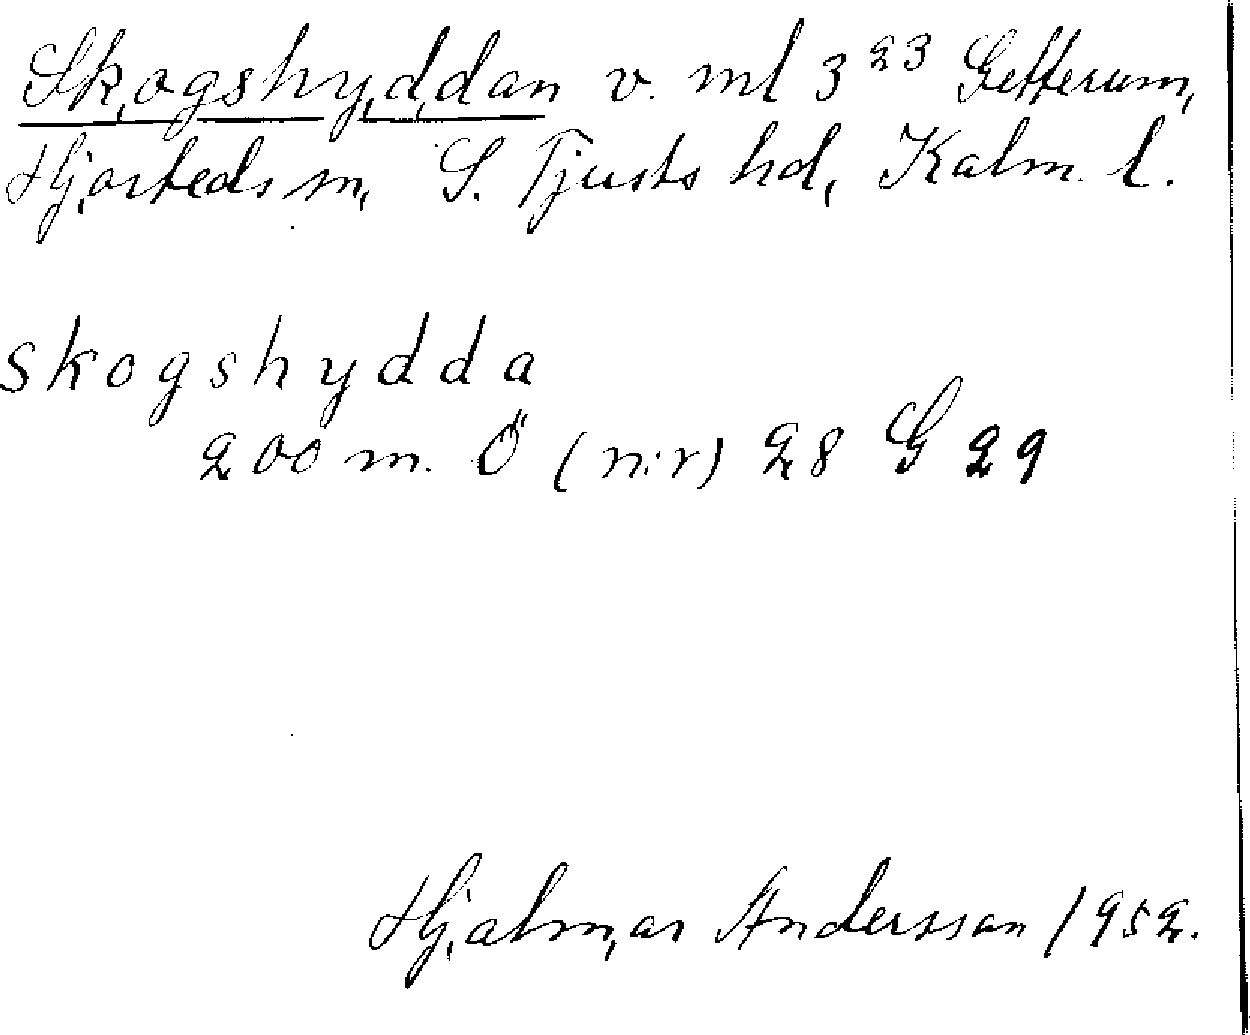 Skogshyddan v. ml 3²³ Getterum,
Hjorteds sn, S. Tjusts hd, Kalm. l.
skogshydda
200 m. Ö (n:r) 28 G 29
Hjalmar Andersson 1952.